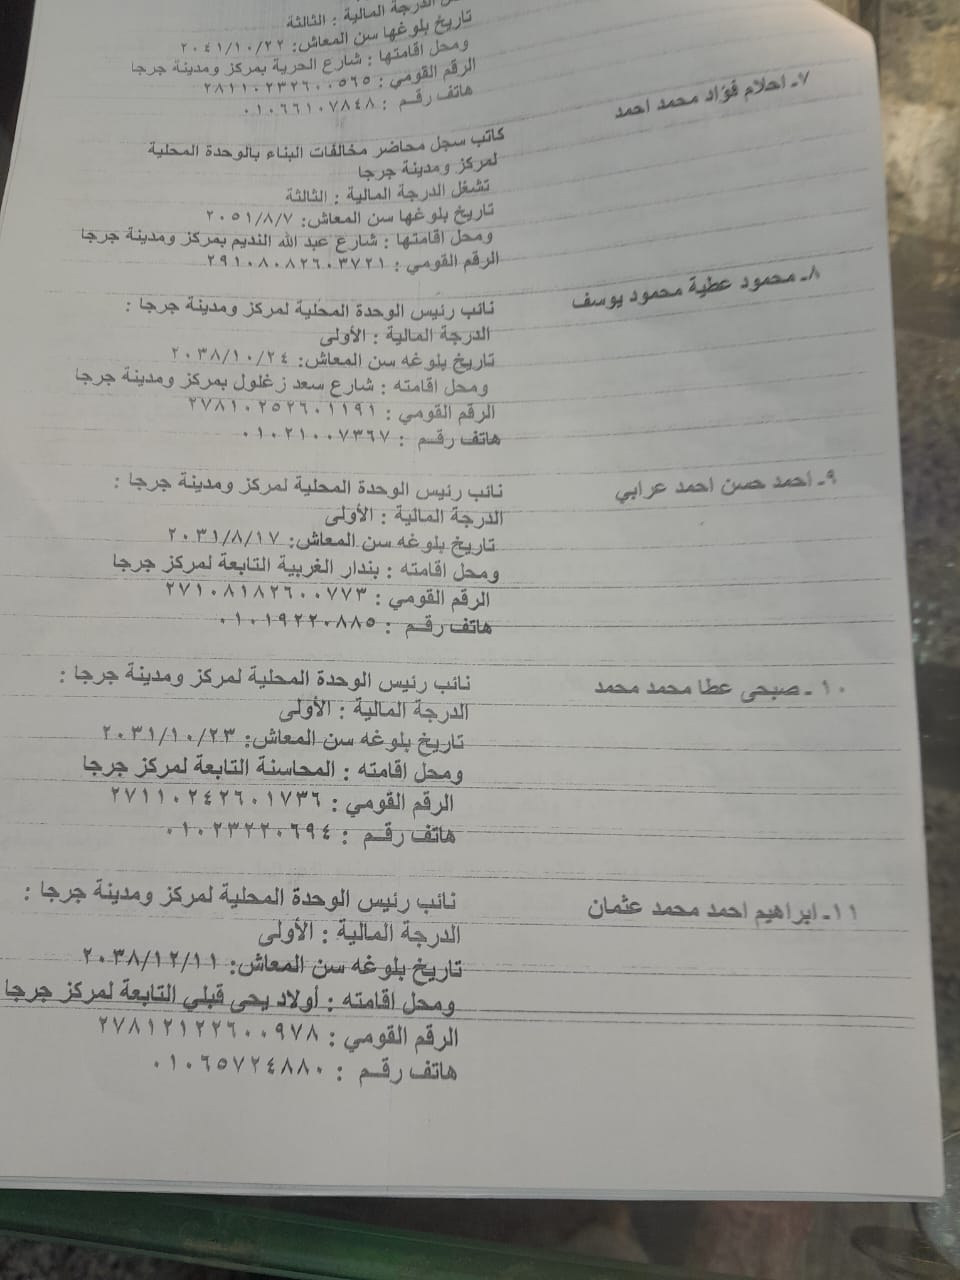 الدرجة المالية : الثالثة
تاريخ بلوغها سن المعاش: ٢٠٤١/١٠/٢٢
ومحل اقامتها : شارع الحرية بمركز ومدينة جرجا
الرقم القومي : ٢٨١١٠٢٣٢٦٠٠٥٦٥
هاتف رقم : ٠١٠٦٦١٠٧٨٤٨
٧- احلام فؤاد محمد احمد
كاتب سجل محاضر مخالفات البناء بالوحدة المحلية
لمركز ومدينة جرجا
تشغل الدرجة المالية : الثالثة
تاريخ بلوغها سن المعاش: ٢٠٥١/٨/٧
ومحل اقامتها : شارع عبد الله النديم بمركز ومدينة جرجا
الرقم القومي : ٢٩١٠٨٠٨٢٦٠٣٧٢١
٨- محمود عطية محمود يوسف
نائب رئيس الوحدة المحلية لمركز ومدينة جرجا :
الدرجة المالية : الأولى
تاريخ بلوغه سن المعاش: ٢٠٣٨/١٠/٢٤
ومحل اقامته : شارع سعد زغلول بمركز ومدينة جرجا
الرقم القومي : ٢٧٨١٠٢٥٢٦٠١١٩١
هاتف رقم : ٠١٠٢١٠٠٧٣٦٧
٩- احمد حسن احمد عرابي
نائب رئيس الوحدة المحلية لمركز ومدينة جرجا :
الدرجة المالية : الأولى
تاريخ بلوغه سن المعاش: ٢٠٣١/٨/١٧
ومحل اقامته : بندار الغربية التابعة لمركز جرجا
الرقم القومي : ٢٧١٠٨١٨٢٦٠٠٧٧٣
هاتف رقم : ٠١٠١٩٢٢٠٨٨٥
١٠- صبحى عطا محمد محمد
نائب رئيس الوحدة المحلية لمركز ومدينة جرجا :
الدرجة المالية : الأولى
تاريخ بلوغه سن المعاش: ٢٠٣١/١٠/٢٣
ومحل اقامته : المحاسنة التابعة لمركز جرجا
الرقم القومي : ٢٧١١٠٢٤٢٦٠١٧٣٦
هاتف رقم : ٠١٠٢٣٢٢٠٦٩٤
١١- ابراهيم احمد محمد عثمان
نائب رئيس الوحدة المحلية لمركز ومدينة جرجا :
الدرجة المالية : الأولى
تاريخ بلوغه سن المعاش: ٢٠٣٨/١٢/١١
ومحل اقامته : أولاد يحى قبلي التابعة لمركز جرجا
الرقم القومي : ٢٧٨١٢١٢٢٦٠٠٩٧٨
هاتف رقم : ٠١٠٦٥٧٢٤٨٨٠